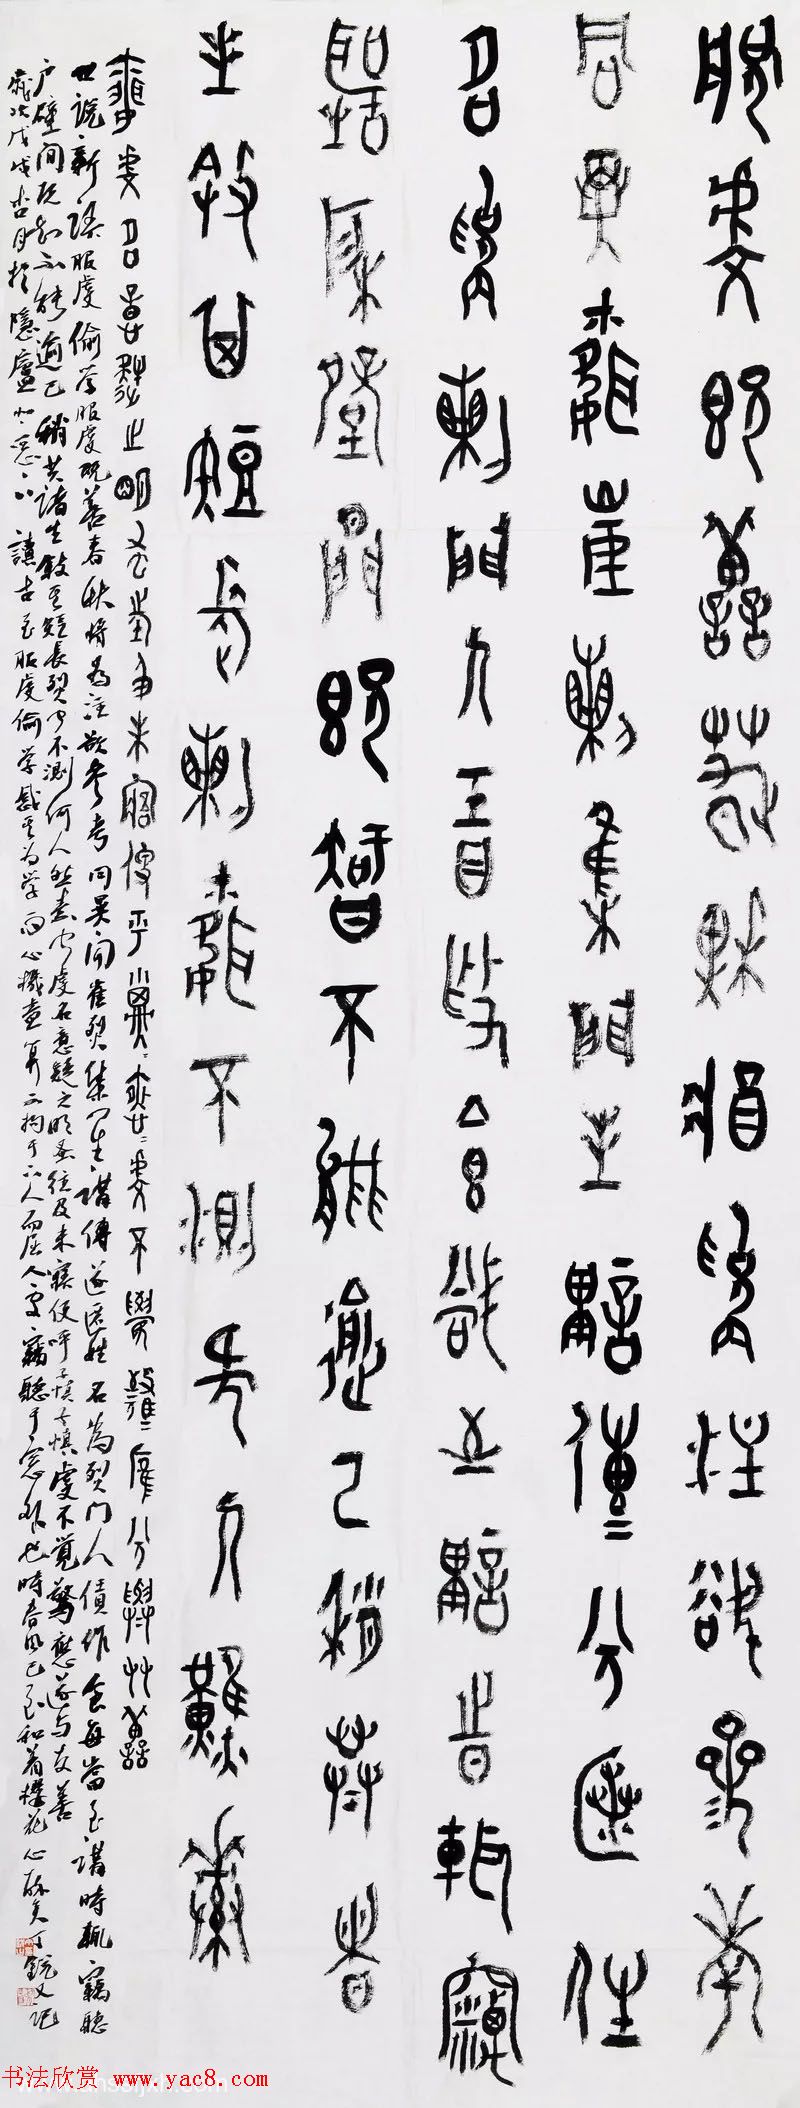 服虔既善春秋將為注欲參考
同異聞崔烈集門生講傳遂匿姓
名為烈門人賃作食當至講時輒竊
聽戶壁間既知不能逾己稍共諸
生敘其短長烈聞不測何人然素
聞虔名意疑之明蚤往及未寤便呼子慎子慎虔不覺驚應遂與友善
世說新語服虔偷學服虔既善春秋將為注欲參考同異聞崔烈集門生講傳遂匿姓名為烈門人賃作食每當至講時輒竊聽
户壁間既知不能逾己稍共諸生敘其短長烈聞不測何人然素聞虔名意疑之明蚤往及未寤便呼子慎子慎虔不覺驚應遂与友善
歲次戊戌杏月於隱廬讀古至服虔偷學感其為學而不拘于人而居人竊聽于窓外也時春風已至和着櫻花心醉矣丁銳又记
书法欣赏 www.yac8.com